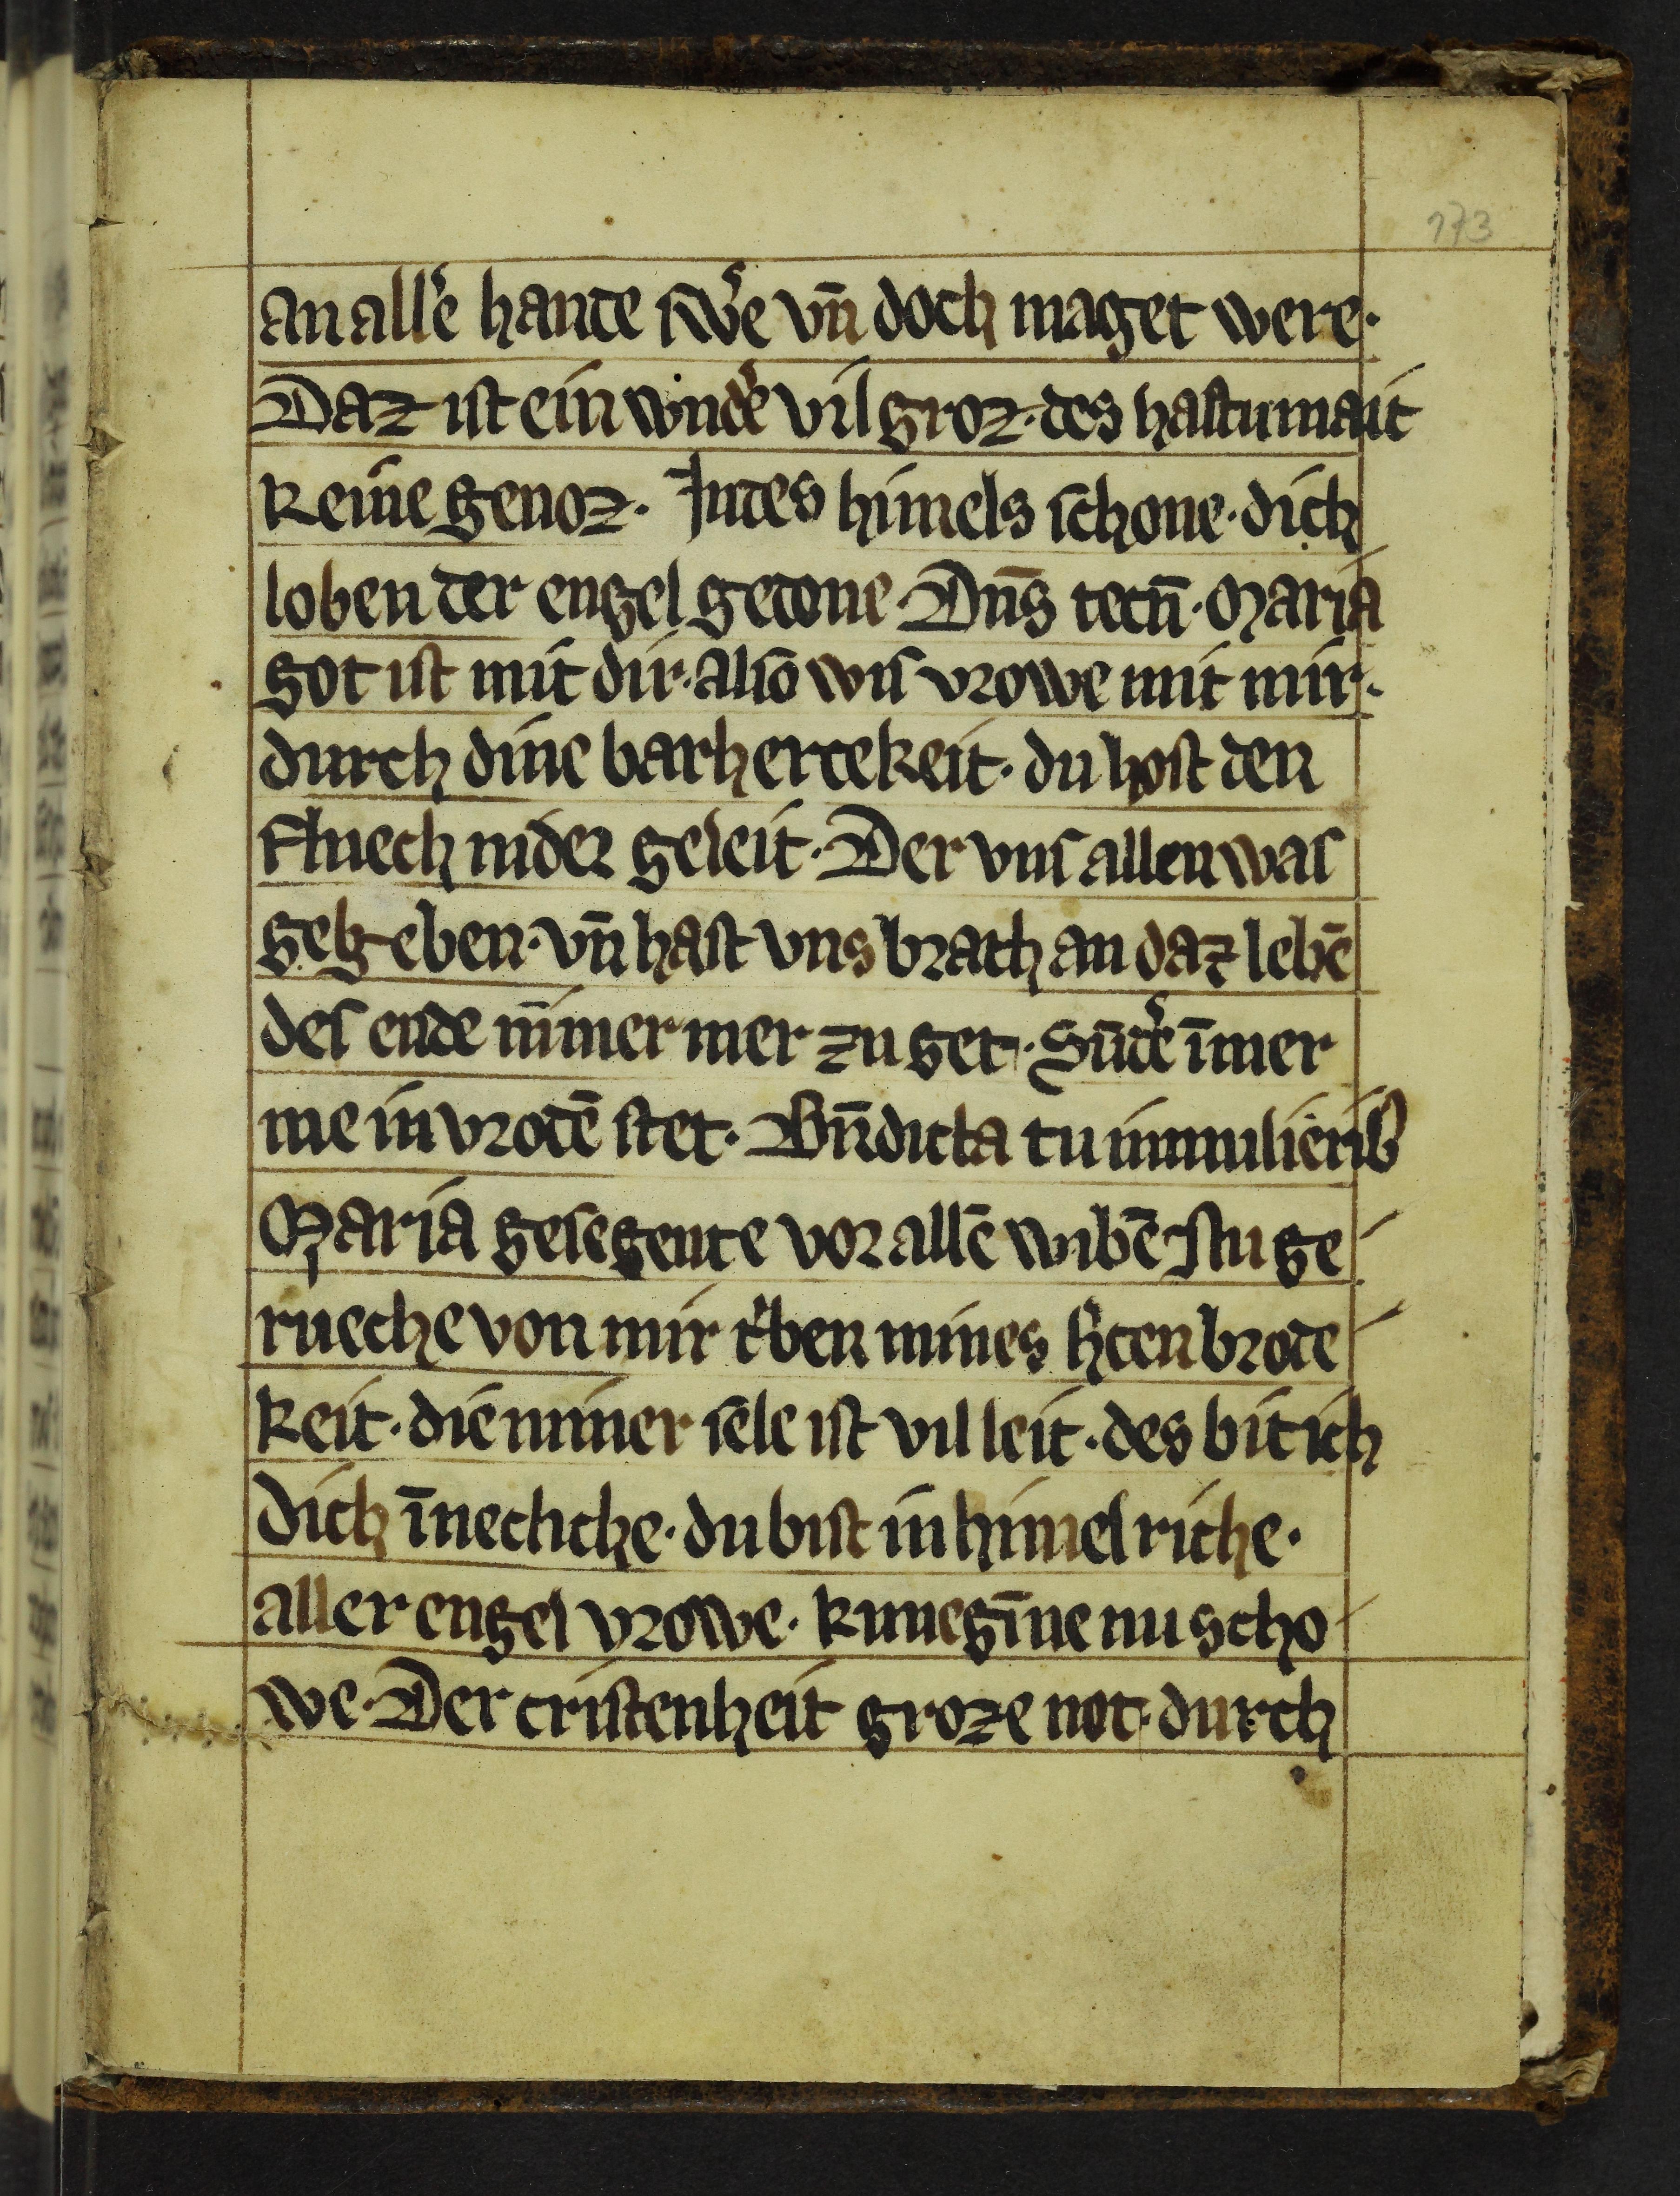 173
an all'e hande sw'e vn̄ doch maget were·
Daz ist ein wnd'e vil groz· des hastu mait
keine genoz· In des himels schone· dich
loben der engel gedone· Dn̄s tecū· Maria
got ist mit dir· also wis vrowe mit mir·
durch dine barhercekeit· du host den
fluech nider geleit· Der vns allen was
gegeben· vn̄ hast vns brach an daz lebē
des ende nīmer mer zu get· Sūd'e īmer
me in vrodē stet· Bn̄dicta tu in mulierib
Maria gesegente vor allē wibē Nu ge
rueche von mir t'ben mines h'cen brode
keit· die miner sele ist vil leit· des bit ich
dich īnecliche· du bist in himelriche·
aller engel vrowe· kunegīne nu scho
we· Der cristenheit groze not· durch